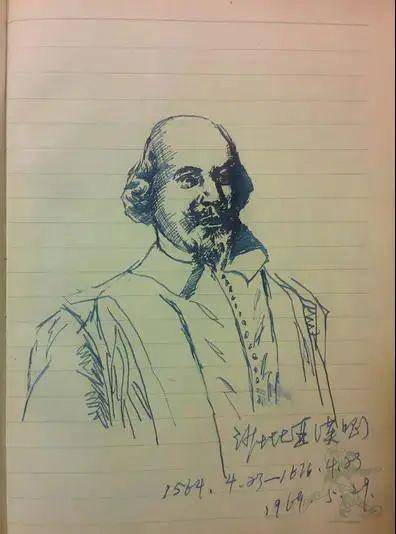 沙士比亚
1564. 4.23—1616.4.23
1969. 5.